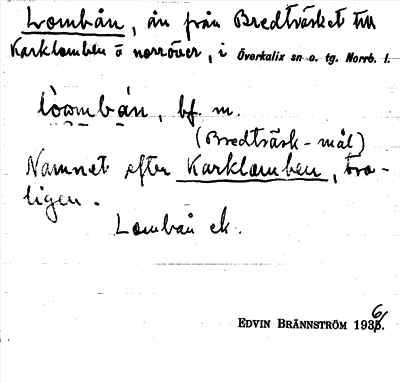 Lombån, ån från Bredträsket till
Karklomben o norröver, i Överkalix sn o. tg. Norrb. l.
lòombån, bf. m.
(Bredträsk-mål)
Namnet efter Karklomben, tro-
ligen.
Lombån ek.
EDVIN BRÄNNSTRÖM 1936.